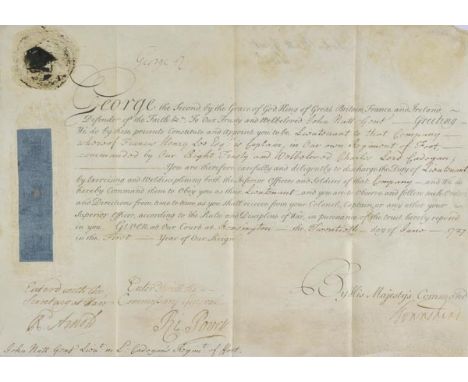 George R
George the Second by the Grace of God King of Great Britain, France and Ireland
Defender of the Faith &c. To Our Trusty and Welbeloved John Nutt Gent Greeting
We do by these presents Constitute and Appoint you to be Lieutenant to that Company
whereof Francis Henry Lee Esq is Captain, in our own Regiment of Foot
commanded by Our Right Trusty and Welbeloved Charles Lord Cadogan
You are therefore carefully and diligently to discharge the Duty of Lieutenant
by Exercising and Welldisciplining both the Inferior Officers and Soldiers of that Company and We do
hereby Command them to Obey you as their Lieutenant and you are to Observe and follow such Orders
and Directions from time to time as you shall receive from your Colonel, Captain, or any other your
Superior Officer, according to the Rules and Discipline of War, in pursuance of the trust hereby reposed
in you. GIVEN at Our Court at Kensington the Twentieth day of June 1727
in the First Year of Our Reign
By His Majestys Command
Townshend
Enterd with the
Secretary at War
R Arnold
Enterd with the
Commissary
John Nutt Gent Lieut in Ld Cadogans Regimt of Foot